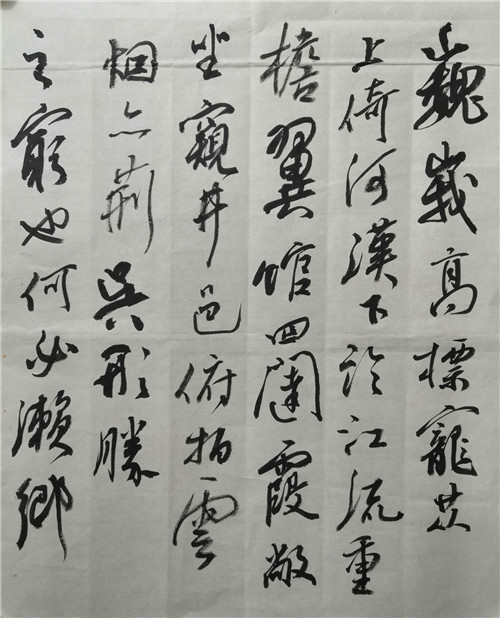 巍峩高標寵苁
上倚河漢下臨江流重
檐翼館四闥霞敞
坐窺井邑俯拍雲
烟亦荆吳形勝
之最也何必瀨鄉